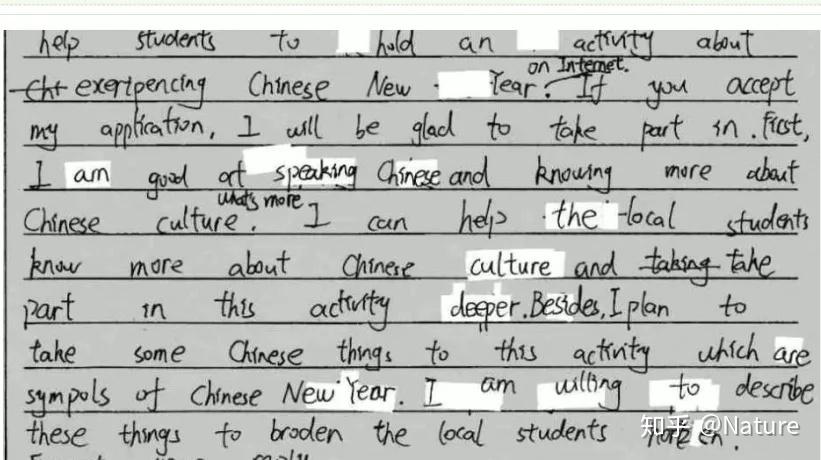 help students to hold an activity about
exertpencing Chinese New Year. on Internet. If you accept
my application, I will be glad to take part in. First,
I am good at speaking Chinese and knowing more about
Chinese culture. what's more I can help the local students
know more about Chinese culture and taking take
part in this activity deeper. Besides, I plan to
take some Chinese things to this activity which are
sympols of Chinese New Year. I am willing to describe
these things to broden the local students
知乎 @Nature